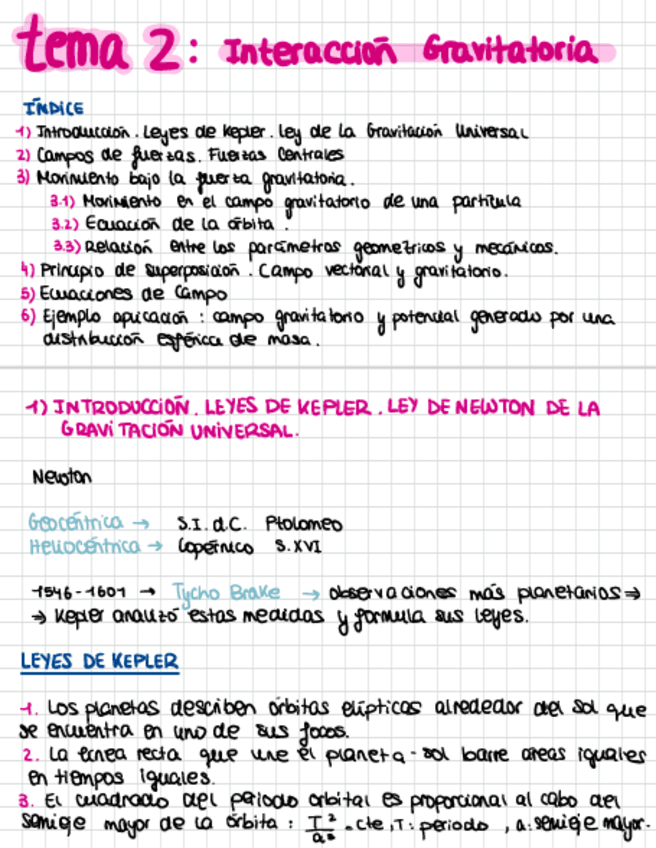 tema 2: Interacción Gravitatoria
ÍNDICE
1) Introducción. Leyes de Kepler. Ley de la Gravitación Universal
2) Campos de fuerzas. Fuerzas Centrales
3) Movimiento bajo la fuerza gravitatoria.
3.1) Movimiento en el campo gravitatorio de una partícula
3.2) Ecuación de la órbita.
3.3) Relación entre los parámetros geométricos y mecánicos.
4) Principio de superposición. Campo vectorial y gravitatorio.
5) Ecuaciones de Campo
6) Ejemplo aplicación: campo gravitatorio y potencial generado por una
distribución esférica de masa.
1) INTRODUCCIÓN. LEYES DE KEPLER. LEY DE NEWTON DE LA
GRAVITACIÓN UNIVERSAL.
Newton
Geocéntrica → S.I. d.C. Ptolomeo
Heliocéntrica → Copérnico S.XVI
1546-1601 → Tycho Brake → observaciones más planetarios ⇒
⇒ Kepler analizó estas medidas y formula sus leyes.
LEYES DE KEPLER
1. Los planetas describen órbitas elípticas alrededor del Sol que
se encuentra en uno de sus focos.
2. La línea recta que une el planeta-sol barre áreas iguales
en tiempos iguales.
3. El cuadrado del periodo orbital es proporcional al cubo del
semieje mayor de la órbita: T²/a³ = cte, T: periodo, a: semieje mayor.